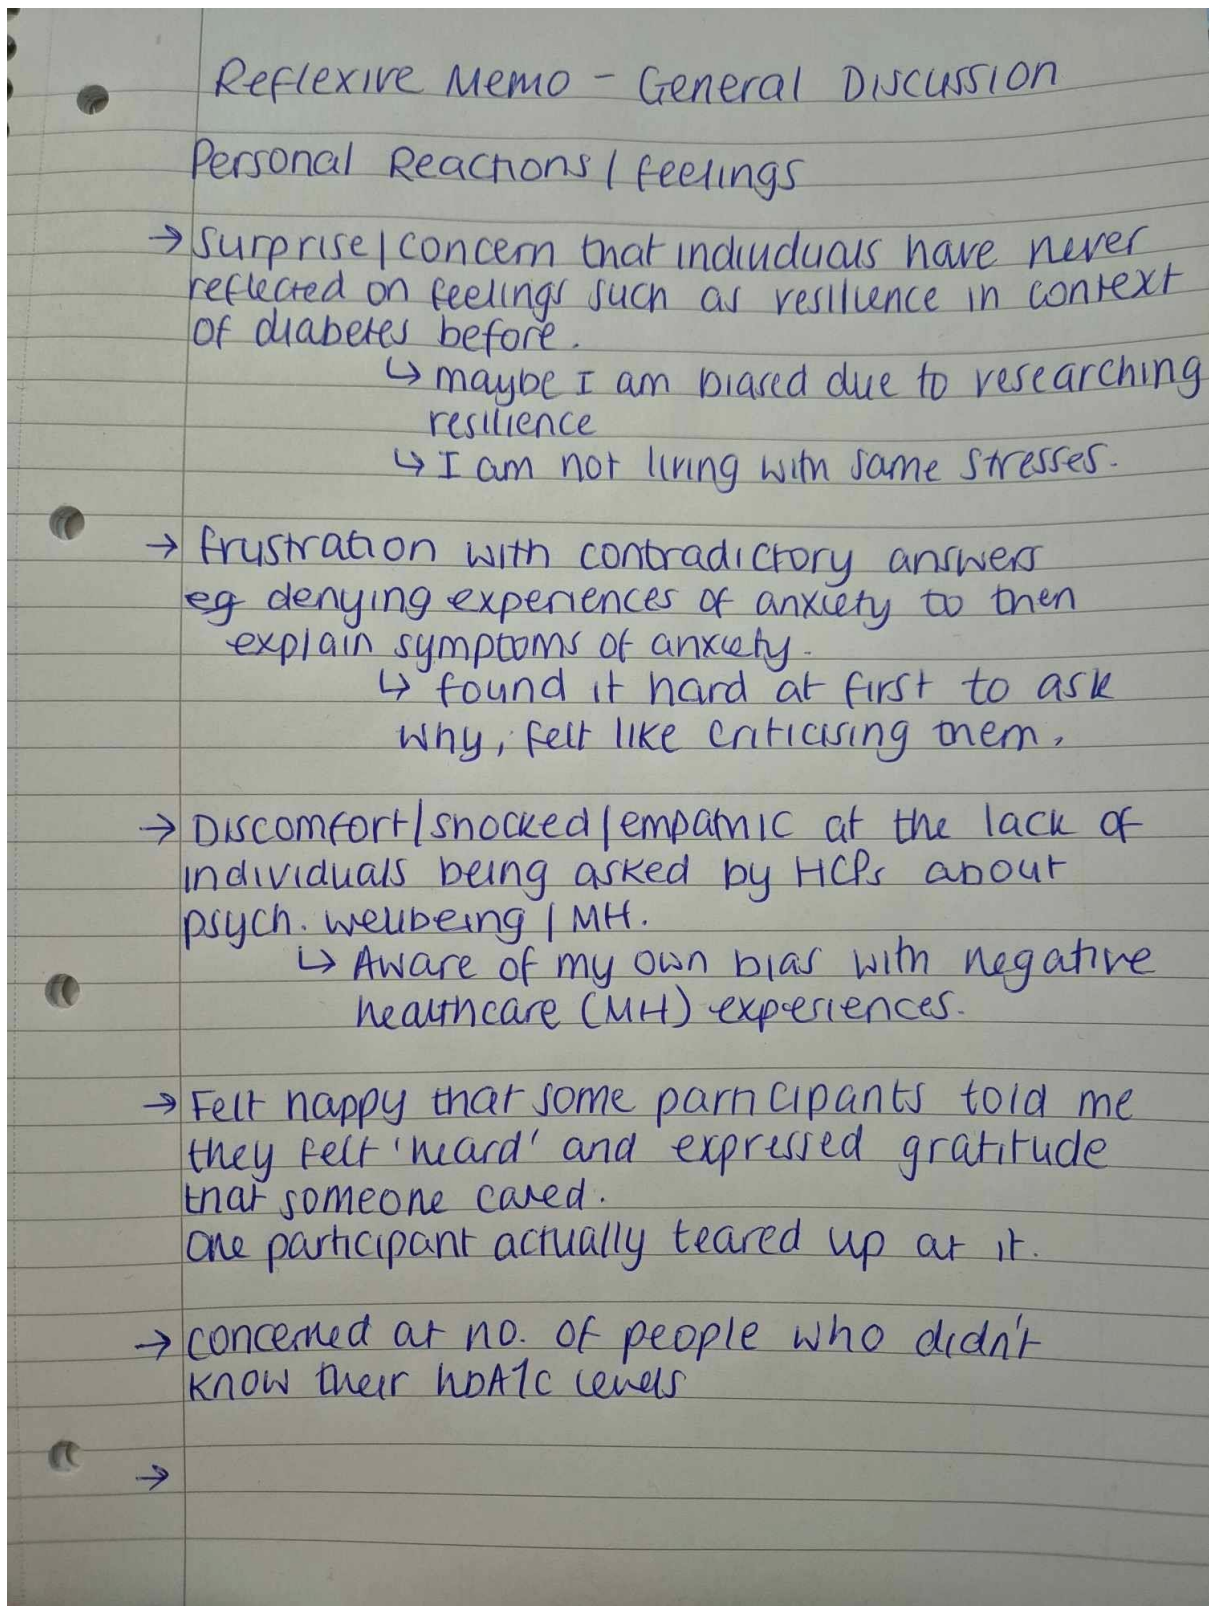 Reflexive Memo - General Discussion
Personal Reactions / feelings
→ Surprise / concern that individuals have never
reflected on feelings such as resilience in context
of diabetes before.
↳ maybe I am biased due to researching
resilience
↳ I am not living with same stresses.
→ frustration with contradictory answers
eg denying experiences of anxiety to then
explain symptoms of anxiety.
↳ found it hard at first to ask
why, felt like criticising them.
→ Discomfort / shocked / empathic at the lack of
individuals being asked by HCPs about
psych. wellbeing / MH.
↳ Aware of my own bias with negative
healthcare (MH) experiences.
→ Felt happy that some participants told me
they felt 'heard' and expressed gratitude
that someone cared.
One participant actually teared up at it.
→ concerned at no. of people who didn't
know their hbA1c levels
→